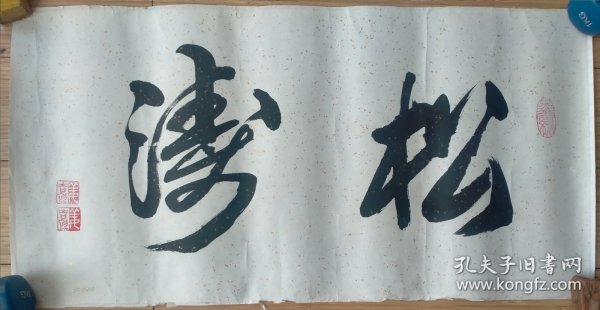 松涛
孔夫子旧书网
www.kongfz.com